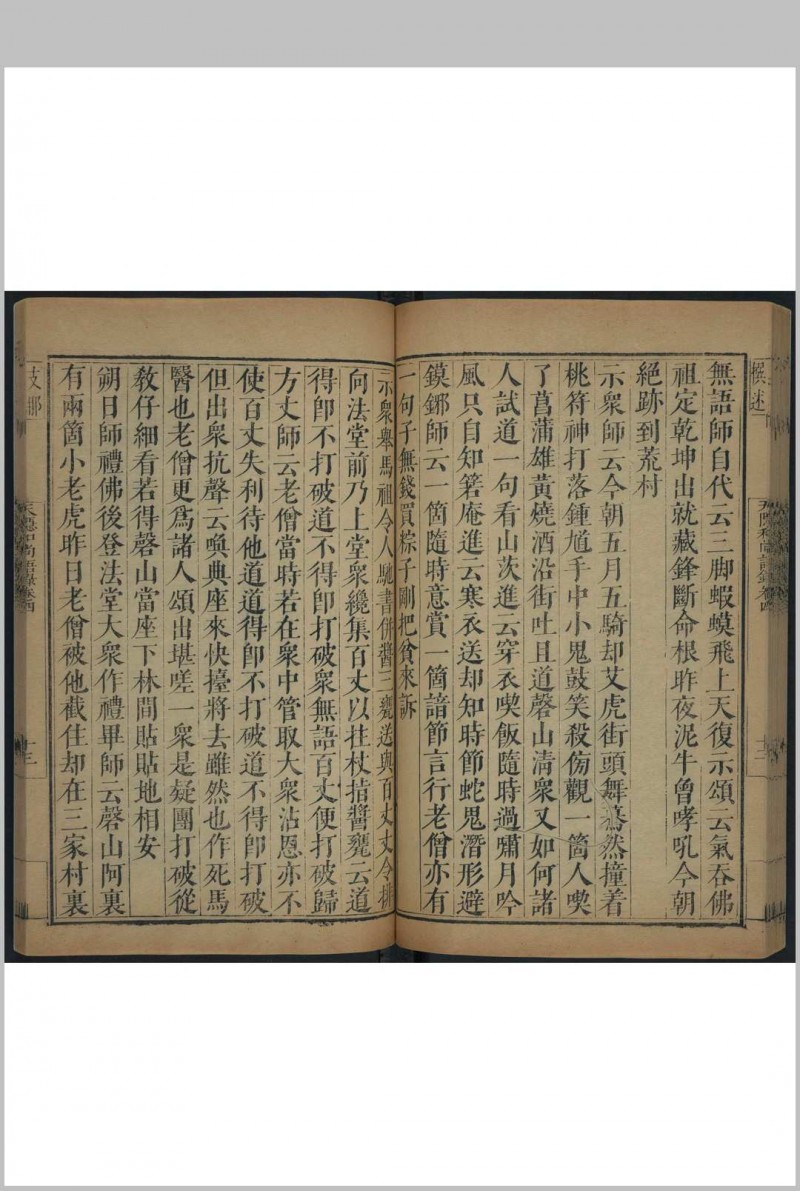 撰述
無語師自代云三脚蝦蟆飛上天復示頌云氣吞佛
祖定乾坤出就藏鋒斷命根昨夜泥牛曾哮吼今朝
絕跡到荒村
示衆師云今朝五月五騎却艾虎街頭舞驀然撞着
桃符神打落鍾馗手中小鬼鼓笑殺傍觀一箇人喫
了菖蒲雄黃燒酒沿街吐且道磬山清衆又如何諸
人試道一句看山茨進云穿衣喫飯隨時過嘯月吟
風只自知箬庵進云寒衣送却知時節蛇鬼潛形避
鏌鋣師云一箇隨時意賞一箇諳節言行老僧亦有
一句子無錢買粽子剛把貧來訴
示衆舉馬祖令人馳書併醬三甕送與百丈丈令排
向法堂前乃上堂衆纔集百丈以拄杖指醬甕云道
得卽不打破道不得卽打破衆無語百丈便打破歸
方丈師云老僧當時若在衆中管取大衆沾恩亦不
使百丈失利待他道道得卽不打破道不得卽打破
但出衆抗聲云喚典座來快擡將去雖然也作死馬
醫也老僧更爲諸人頌出堪嗟一衆是疑團打破從
敎仔細看若得磬山當座下林間貼貼地相安
朔日師禮佛後登法堂大衆作禮畢師云磬山阿裏
有兩箇小老虎昨日老僧被他截住却在三家村裏
支那